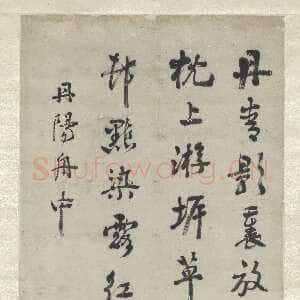 丹青影裏放
枕上游草
點染露紅
丹陽舟中
Shufawang.CN